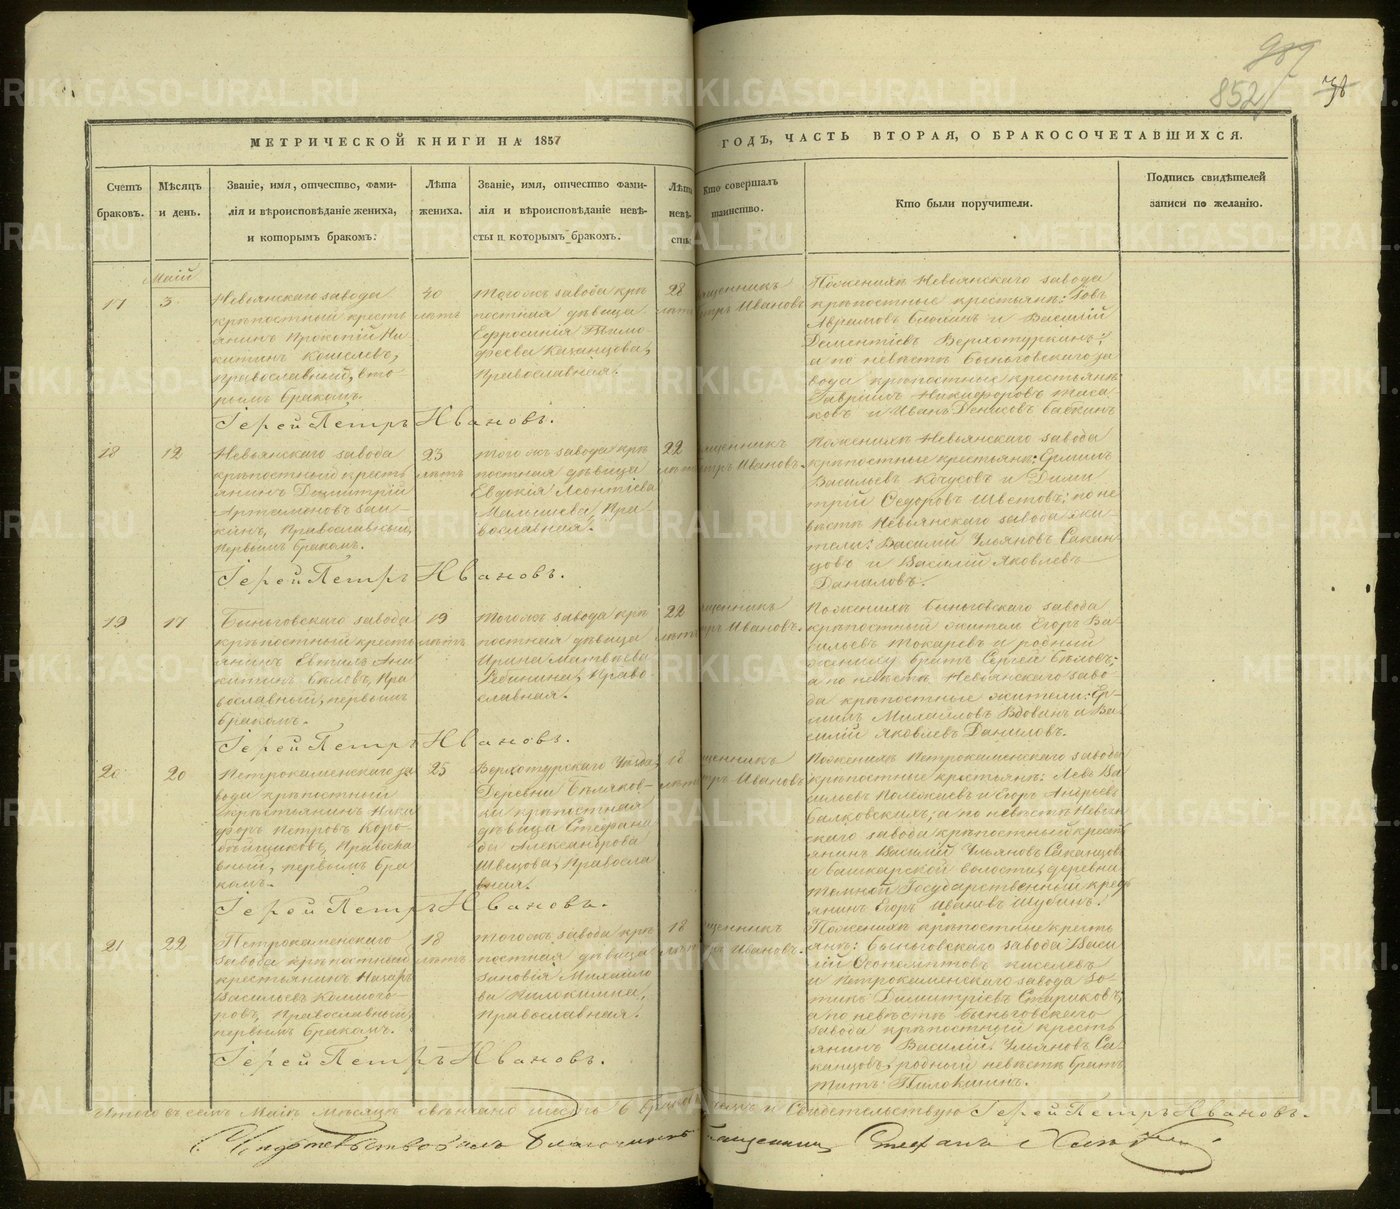 989
852
38
МЕТРИЧЕСКОЙ КНИГИ НА 1857
ГОДЪ, ЧАСТЬ ВТОРАЯ, О БРАКОСОЧЕТАВШИХСЯ.
Счетъ браковъ.
Мѣсяцъ и день.
Званіе, имя, отчество, фами-
лія и вѣроисповѣданіе жениха,
и которымъ бракомъ.
Лѣта жениха.
Званіе, имя, отчество фами-
лія и вѣроисповѣданіе невѣ-
сты и которымъ бракомъ.
Лѣта
невѣ-
сты
Кто совершалъ
таинство.
Кто были поручители.
Подпись свидѣтелей
записи по желанію.
Маій
17
3
Невьянскаго завода
крѣпостный кресть
янинъ Прокопій Ни
китинъ Кошелевъ,
православный, вто
рымъ бракомъ.
40
лѣтъ
Тогожъ завода крѣ
постная дѣвица
Ефросинія Тимо
феева Казанцова,
православная.
28
лѣтъ
ященникъ
тръ Ивановъ
Поженихѣ Невьянскаго завода
крѣпостные крестьяне: Іовъ
Авраамовъ и Василій
Дементіевъ Верхотуркинъ;
а по невѣстѣ Быньговскаго за
вода крѣпостные крестьяне
Гавріилъ Никифоровъ Таса
ковъ и Иванъ Денисовъ Бабкинъ
Іерей Петръ Ивановъ.
18
12
Невьянскаго завода
крѣпостный кресть
янинъ Димитрій
Артамоновъ Заи-
кинъ, Православный,
первымъ бракомъ.
23
лѣтъ
Тогожъ завода крѣ
постная дѣвица
Евдокія Леонтіева
Мамаева, Пра-
вославная.
22
лѣтъ
ященникъ
тръ Ивановъ.
Поженихѣ Невьянскаго завода
крѣпостные крестьяне:
Васильевъ и Дими
трій Федоровъ Шветовъ; по не
вѣстѣ Невьянскаго завода жи-
тели: Василій Ульяновъ Сакан-
цовъ и Василій Яковлевъ
Даниловъ.
Іерей Петръ Ивановъ.
19
17
Быньговскаго завода
крѣпостный кресть
янинъ Ани
китинъ Бѣлевъ, Пра
вославный, первымъ
бракомъ.
19
лѣтъ
Тогожъ завода крѣ
постная дѣвица
Ирина Матвѣева
Рябинина, Право
славная.
22
лѣтъ
ященникъ
тръ Ивановъ.
Поженихѣ Быньговскаго завода
крѣпостный житель Егоръ Ва-
сильевъ Токаревъ и родный
жениху братъ Сергей Бѣловъ;
а по невѣстѣ Невьянскаго заво-
да крѣпостные жители: Ер-
милъ Михайловъ Вдовинъ и Ва-
силій Яковлевъ Даниловъ.
Іерей Петръ Ивановъ.
20
20
Петрокаменскаго за
вода крѣпостный
крестьянинъ Ники
форъ Петровъ Коро-
бейщиковъ, Правосла
вный, первымъ бра
комъ.
25
Верхотурскаго Уѣзда,
Деревни Бѣляков-
ки крѣпостная
дѣвица Степани
да Александрова
Швецова, Правосла
вная.
18
лѣтъ
ященникъ
тръ Ивановъ
Поженихѣ Петрокаменскаго завода
крѣпостные крестьяне: Левъ Ва
сильевъ Полежаевъ и Егоръ Андреевъ
а по невѣстѣ Невьян
скаго завода крѣпостный кресть
янинъ Василій Ульяновъ Саканцовъ
и Башкарской волости, деревни
Темной Государственный кресть
янинъ Егоръ Ивановъ Шубинъ.
Іерей Петръ Ивановъ.
21
22
Петрокаменскаго
завода крѣпостный
крестьянинъ Назаръ
Васильевъ Комого-
ровъ, Православный,
первымъ бракомъ.
18
лѣтъ
Тогожъ завода крѣ
постная дѣвица
Зиновія Михайло
ва Пилокшина,
Православная.
18
лѣтъ
ященникъ
ръ Ивановъ.
Поженихѣ крѣпостные кресть
яне: Быньговскаго завода Васи
лій Киселевъ
и Петрокаменскаго завода Зо-
тикъ Димитріевъ Стариковъ,
а по невѣстѣ Быньговскаго
завода крѣпостный кресть
янинъ Василій Ульяновъ Са-
канцовъ, родный невѣстѣ братъ
Титъ Пилокшинъ.
Іерей Петръ Ивановъ.
Итого въ семъ Маіѣ мѣсяцѣ свѣнчано шесть 6 браковъ. и свидѣтельствую Іерей Петръ Ивановъ.
Свидѣтельствовалъ Благочинный Священникъ Стефанъ
METRIKI.GASO-URAL.RU